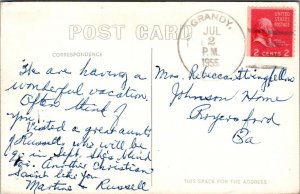 POST CARD
GRANDY,
JUL
2
P.M.
1955
2 CENTS 2
CORRESPONDENCE
We are having a
wonderful vacation.
Often think of
you.
Visited a great aunt
of Russell, who will be
90 in Sept. She's blind
Another Christian
Saint like you
Martha & Russell
Mrs. Rebecca Stringfellow
Johnson Home
Royersford
Pa
THIS SPACE FOR THE ADDRESS